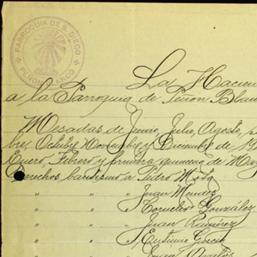 PARROQUIA DE S. DIEGO
La Hacien
a la Parroquia de Peñon Blan
Mesadas de Junio, Julio, Agosto, S
bre, Octubre Noviembre y Diciembre de 19
Enero, Febrero y primera quincena de Ma
Derechos bautismo a Pedro
" " " Juan Mendez
" " " Cornelio González
" " " Juan Ramirez
" " "
" " " Juan